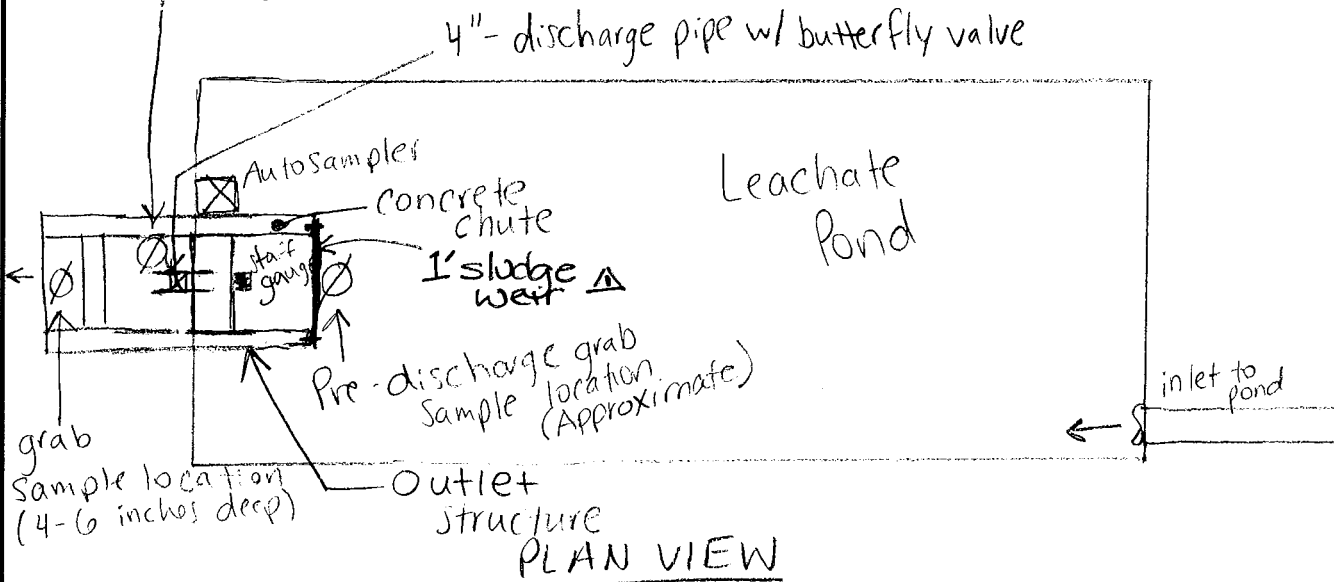 4"- discharge pipe w/ butterfly valve
Autosampler
Concrete
chute
Leachate
Pond
staff
gauge
1' sludge
weir
Pre-discharge grab
sample location
(Approximate)
inlet to
pond
grab
sample location
(4-6 inches deep)
Outlet
structure
PLAN VIEW